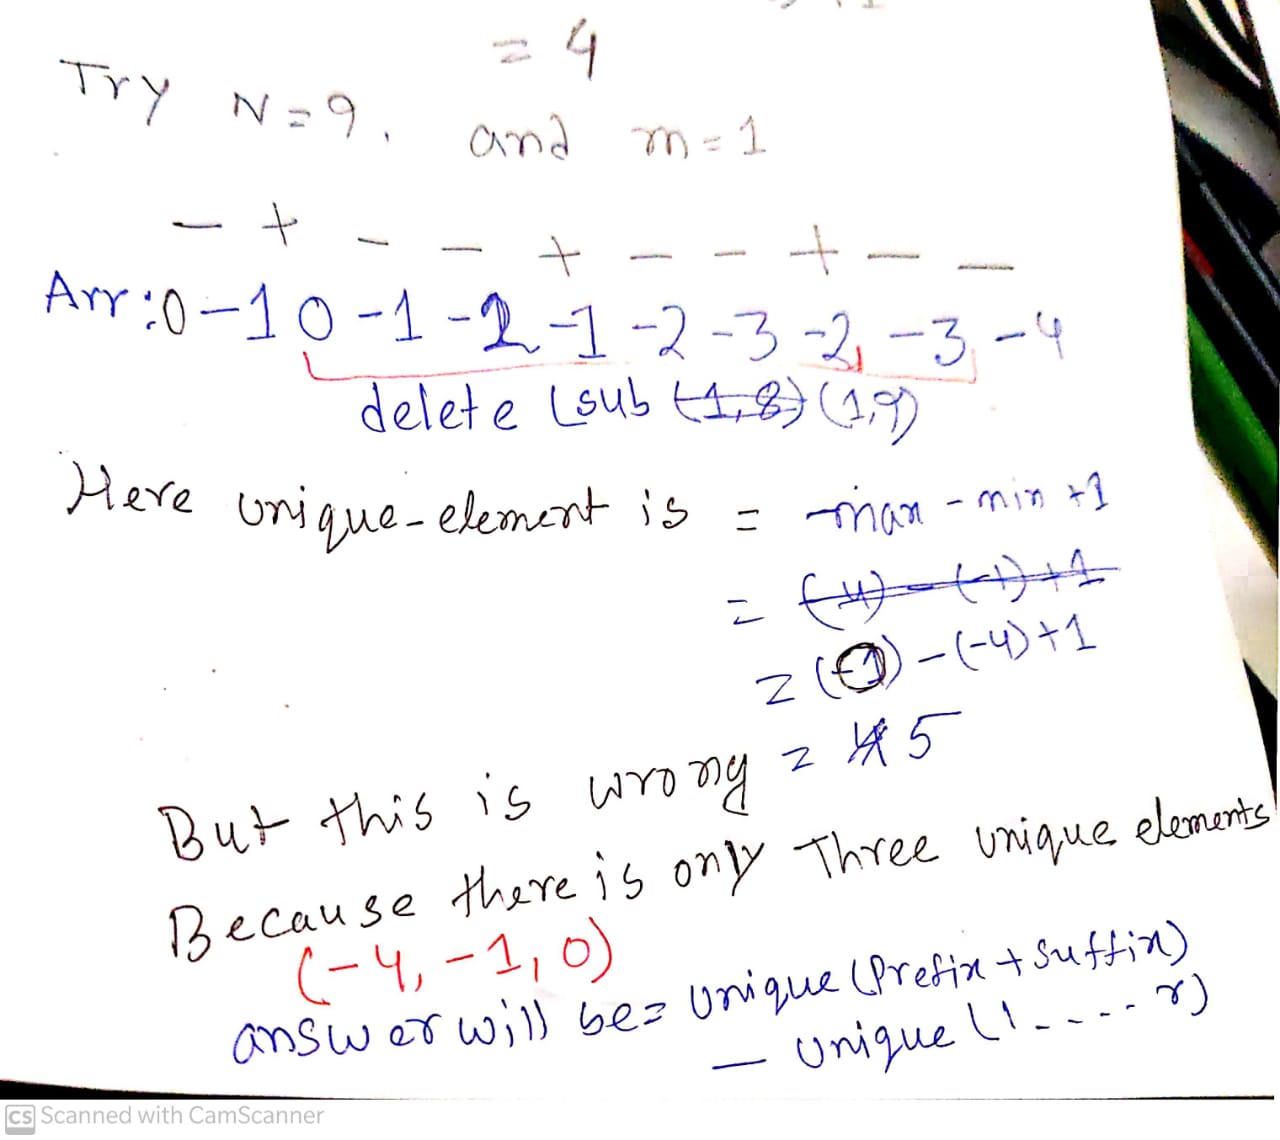 = 4
Try N=9, and m=1
- + - - + - - + - -
Arr: 0 -1 0 -1 -2 -1 -2 -3 -2, -3, -4
delete (sub (1,8) (1,9)
Here unique-element is = max - min +1
= (-4) - (-1) +1
= (-1) - (-4) +1
= 5
But this is wrong
Because there is only Three unique elements
(-4, -1, 0)
answer will be= unique (Prefix + suffix)
- unique (l ---- r)
CS Scanned with CamScanner